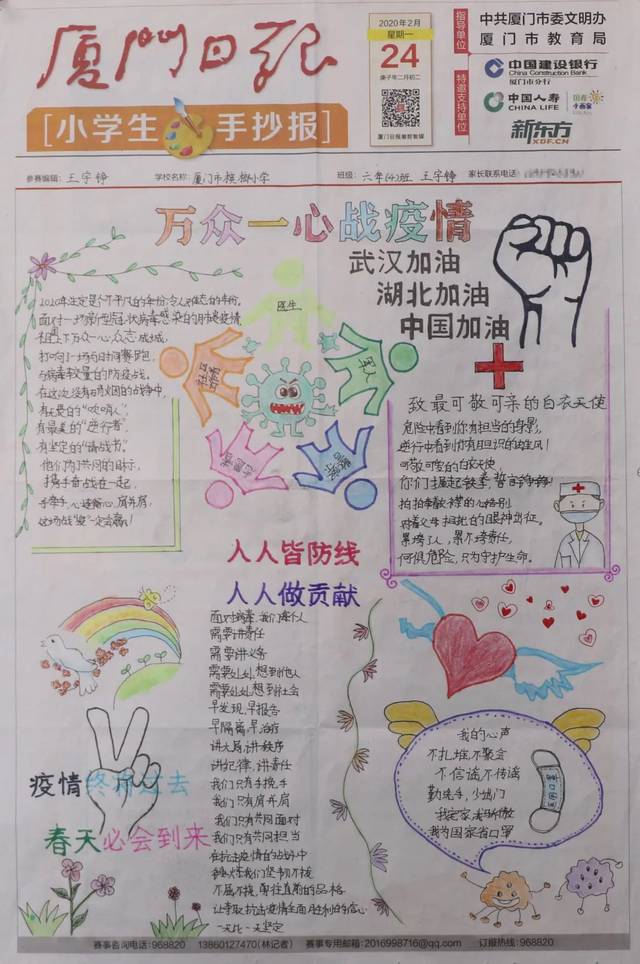 厦门日报
[小学生 手抄报]
2020年2月
星期一
24
庚子年二月初二
厦门日报微智慧媒
指导单位
中共厦门市委文明办
厦门市教育局
特邀支持单位
中国建设银行
China Construction Bank
厦门市分行
中国人寿
CHINA LIFE
新东方
XDF.CN
参赛编辑：王宇铮
学校名称：厦门市槟榔小学
班级：六年(4)班 王宇铮
家长联系电话：
万众一心战疫情
武汉加油
湖北加油
中国加油
2020年注定是个不平凡的年份，令人难忘的年份。
面对一场新型冠状病毒感染的肺炎疫情
万众一心，众志成城，
打响一场与时间赛跑，
与病毒较量的防疫战。
在这次没有硝烟的战争中，
有最美的“吹哨人”，
有最美的“逆行者”，
有坚定的“请战书”。
他们为了共同的目标，
携手奋战在一起，
手牵手，心连心，肩并肩，
这场战“疫”一定会赢！
医生
军人
志愿者
致最可敬可亲的白衣天使
危险中看到你有担当的背影，
逆行中看到你有胆识的
可敬可爱的白衣天使，
你们握起铁拳
累垮了人，累不垮责任，
何惧危险，只为守护生命。
人人皆防线
人人做贡献
面对病毒，我们每个人
需要讲责任
需要讲义务
需要处处想到他人
需要处处想到社会
早发现，早报告
早隔离，早治疗
讲大局，讲秩序
讲纪律，讲责任
我们只有手挽手
我们只有肩并肩
我们只有共同面对
我们只有共同担当
在抗击疫情的战斗中
我们坚韧不拔
不屈不挠，勇往直前的品格
让夺取抗击疫情全面胜利的信心
一天比一天坚定
疫情终将过去
春天必会到来
我的心声
不扎堆，不聚会
不信谣，不传谣
勤洗手，少出门
我宅家，我骄傲
我为国家省口罩
医用口罩
赛事咨询电话：968820 13860127470(林记者) 赛事专用邮箱：2016998716@qq.com 订报热线：968820